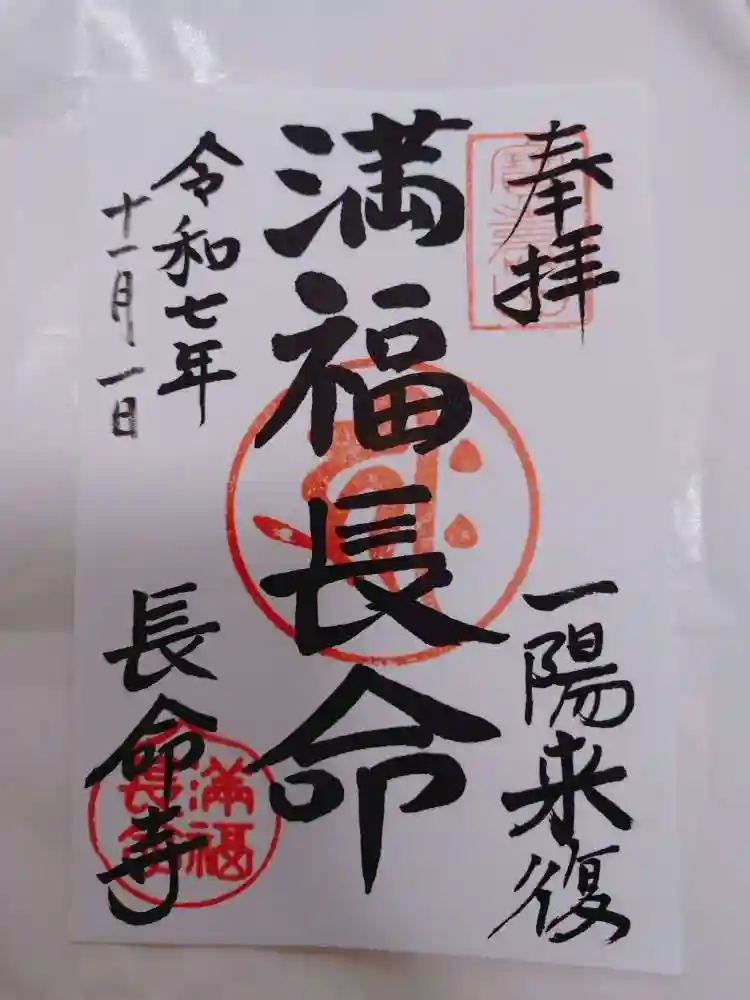 奉拝
一陽来復
満福長命
令和七年
十一月一日
長命寺
満福
長命